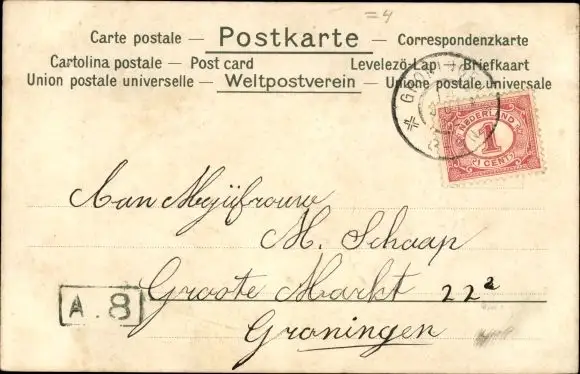 =4
Carte postale — Postkarte — Correspondenzkarte
Cartolina postale — Post card Levelezö-Lap — Briefkaart
Union postale universelle — Weltpostverein — Unione postale universale
NEDERLAND
1
1 CENT
Aan Mejüfrouw
M. Schaap
Groote Markt 22a
A.8
Groningen